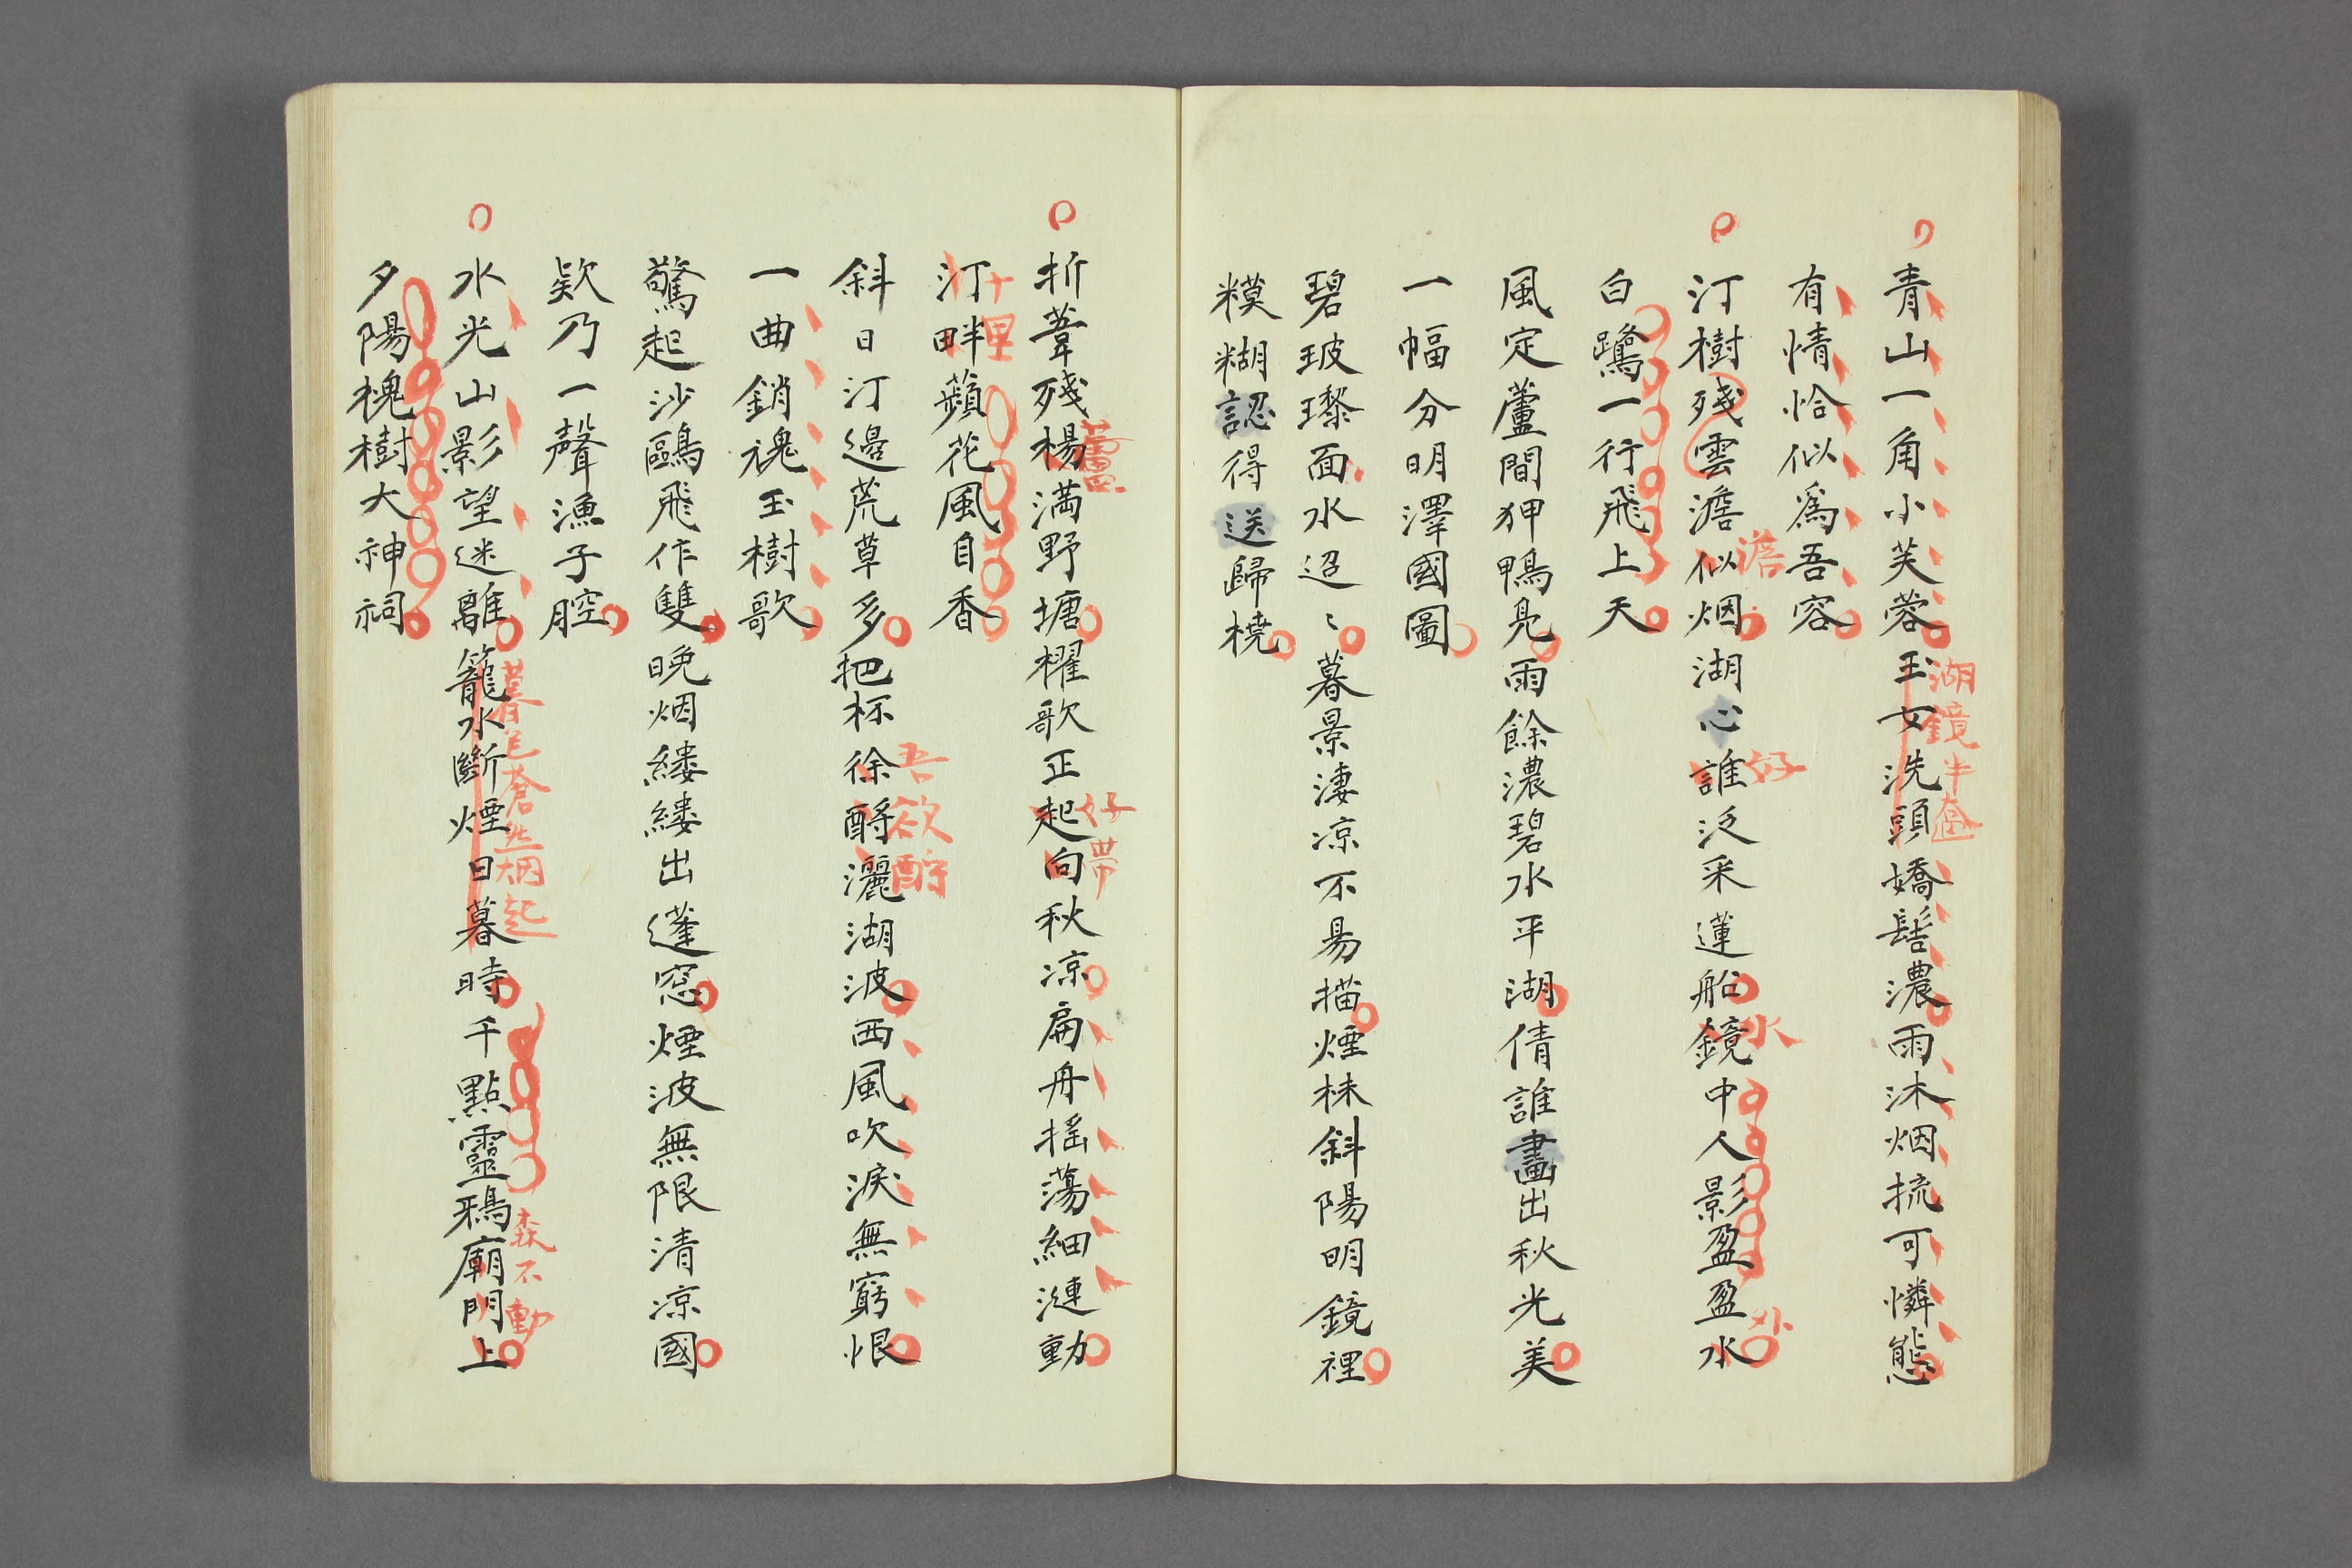 青山一角小芙蓉玉女洗頭嬌髻濃雨沐烟梳可憐態
湖鏡半奩
有情恰似爲吾容
汀樹殘雲澹似烟湖心誰泛采蓮船鏡中人影盈盈水
澹
好
水
外
白鷺一行飛上天
風定蘆間狎鴨鳧雨餘濃碧水平湖倩誰畫出秋光美
一幅分明澤國圖
碧玻瓈面水迢〻暮景淒凉不易描煙林斜陽明鏡裡
糢糊認得送歸橈
折葦殘楊満野塘櫂歌正起向秋凉扁舟揺蕩細漣動
蘆
好帶
汀畔蘋花風自香
十里
斜日汀邊荒草多把杯徐酹灑湖波西風吹淚無窮恨
吾欲酹
一曲銷魂玉樹歌
驚起沙鷗飛作雙晚烟縷縷出蓬窓煙波無限清凉國
欵乃一聲漁子腔
水光山影望迷離籠水斷煙日暮時千點靈鴉廟門上
暮色蒼然烟起
森不動
夕陽槐樹大神祠